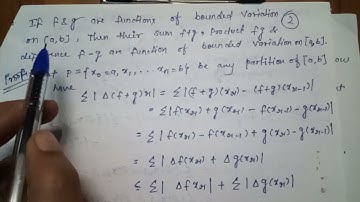 If f & g are functions of bounded variation ②
on [a,b], Then their sum f+g, Product fg &
difference f-g are function of bounded variation on [a,b].
Proof P = {x₀=a, x₁, ... xₙ=b} be any partition of [a,b]
have Σ|Δ(f+g)r| = Σ|(f+g)(xr) - (f+g)(xr-1)|
= Σ|f(xr) + g(xr) - f(xr-1) - g(xr-1)|
= Σ|f(xr) - f(xr-1) + g(xr) - g(xr-1)|
= Σ|Δf(xr) + Δg(xr)|
≤ Σ|Δf(xr)| + Σ|Δg(xr)|